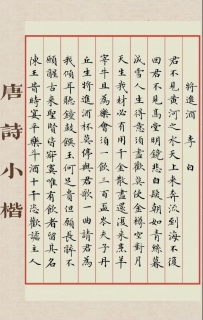 將進酒 李白
君不見黃河之水天上來奔流到海不復
回君不見高堂明鏡悲白髮朝如青絲暮
成雪人生得意須盡歡莫使金樽空對月
天生我材必有用千金散盡還復來烹羊
宰牛且為樂會須一飲三百盃岑夫子丹
丘生將進酒杯莫停與君歌一曲請君為
我傾耳聽鐘鼓饌玉何足貴但願長醉不
願醒古來聖賢皆寂寞惟有飲者留其名
陳王昔時宴平樂斗酒十千恣歡謔主人
唐詩小楷